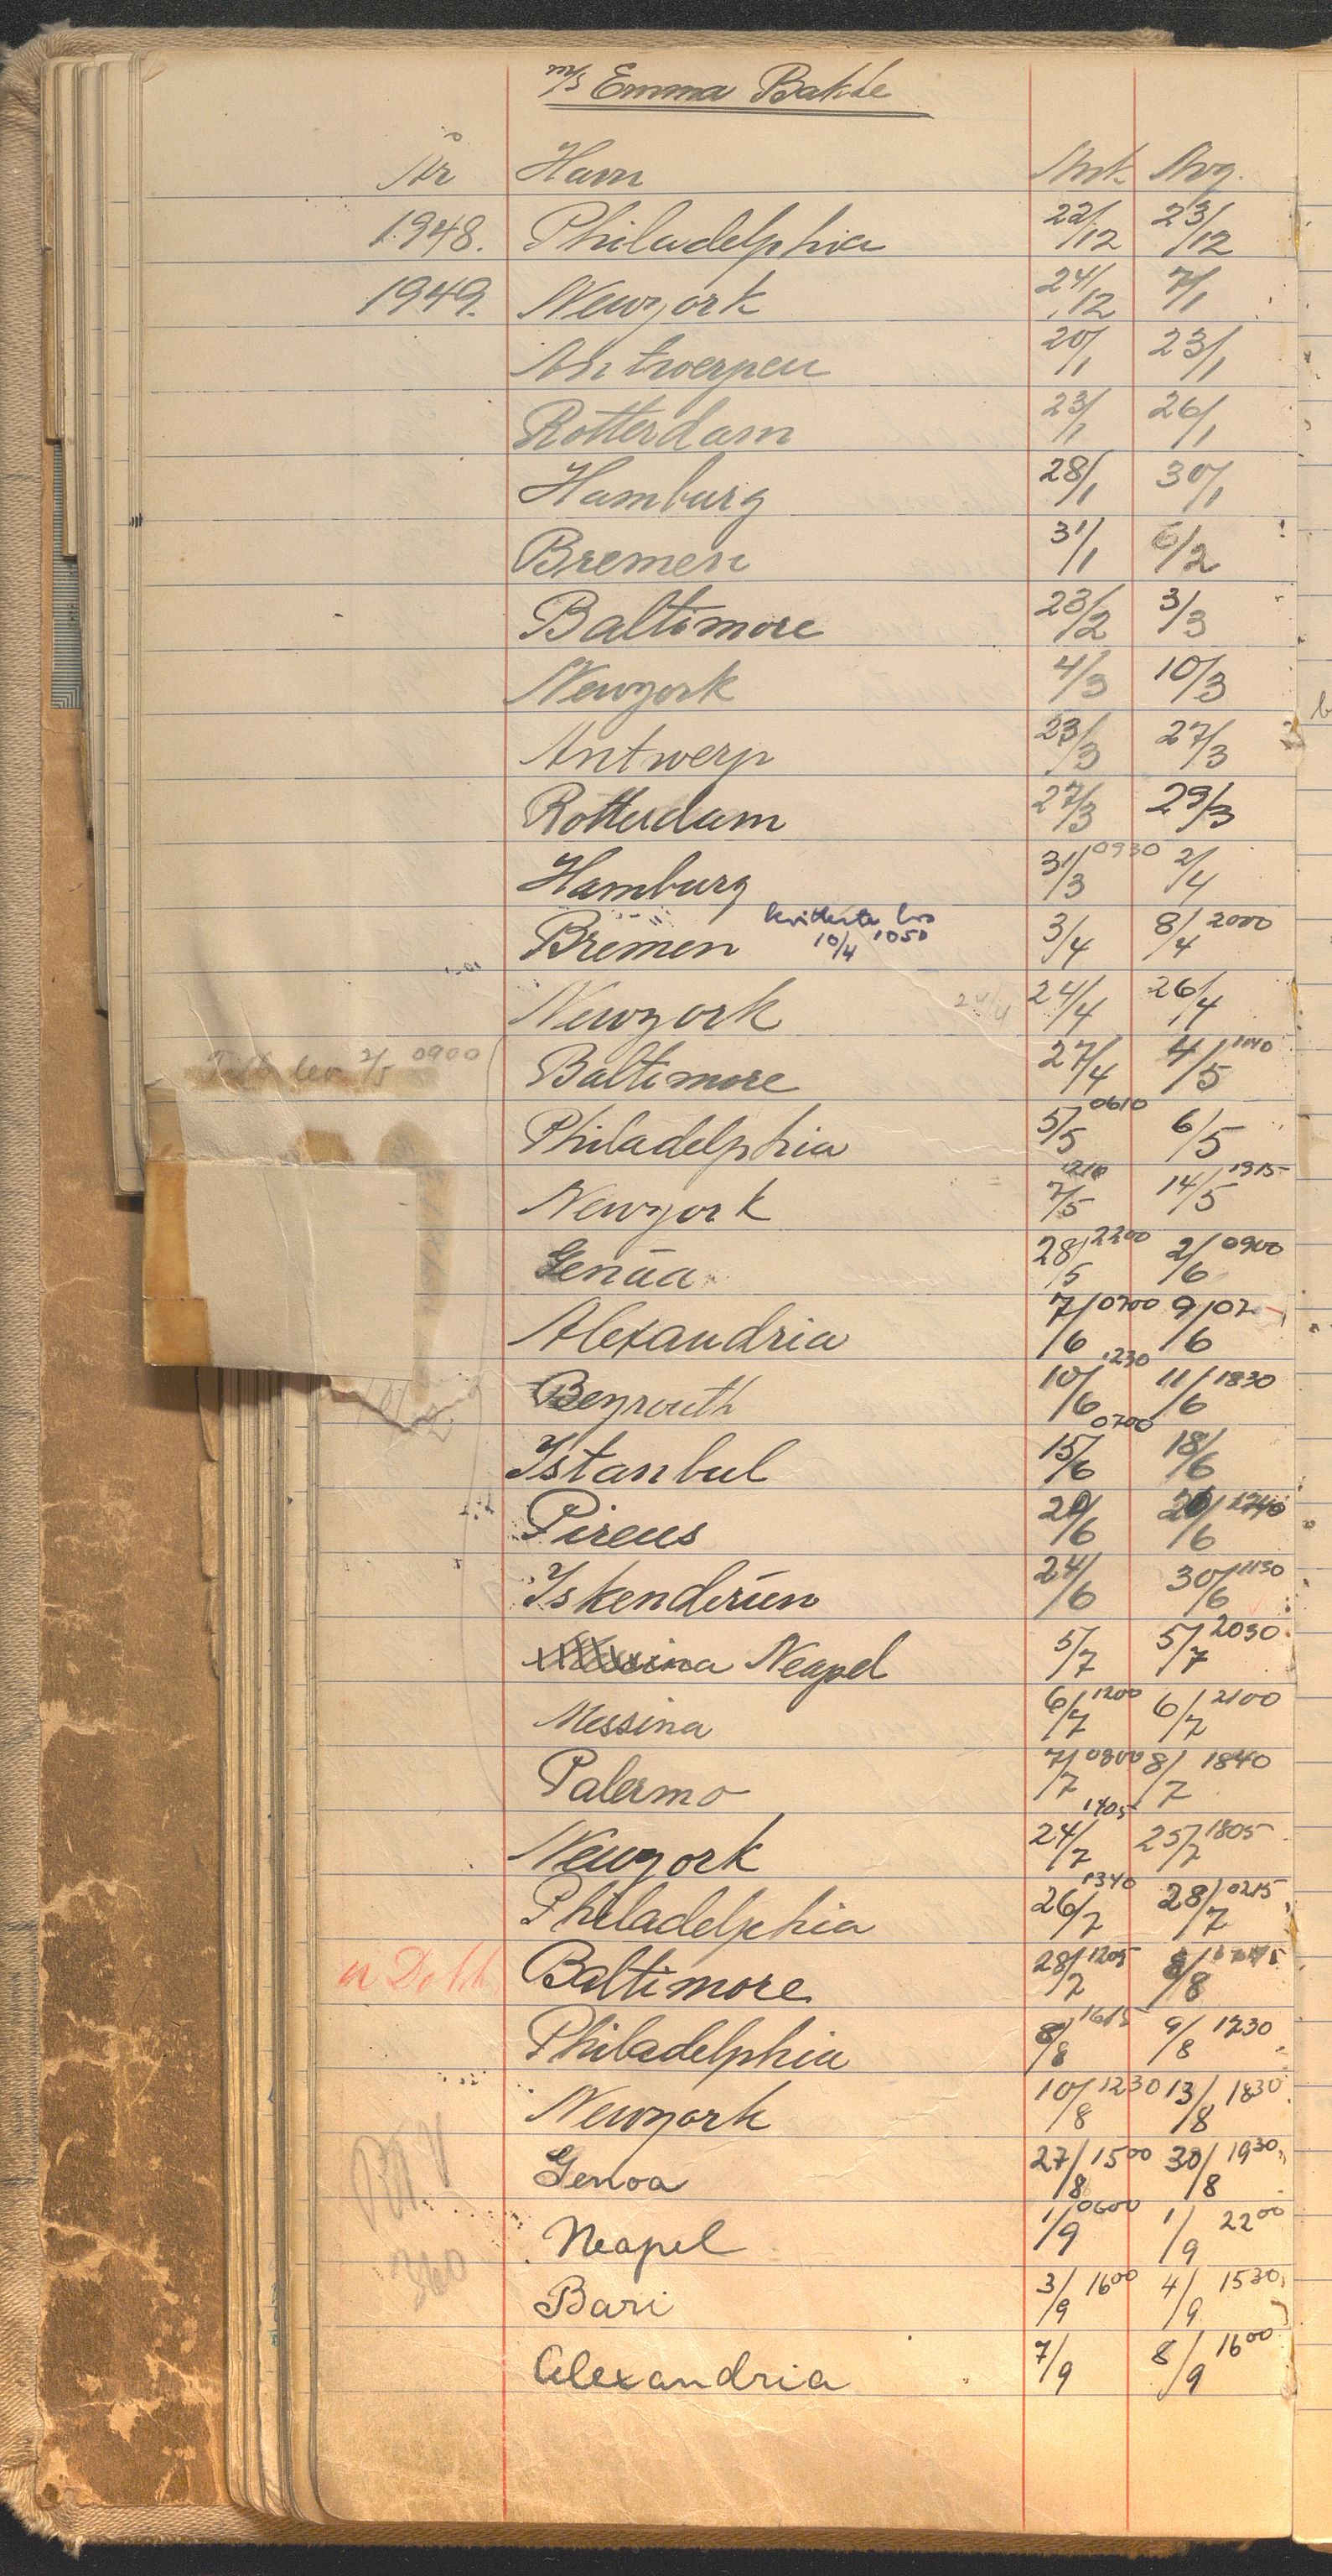 m/s Emma Bakke
År Havn Ank. Avg.
1948. Philadelphia 22/12 23/12
1949. Newyork 24/12 7/1
Antwerpen 20/1 23/1
Rotterdam 23/1 26/1
Hamburg 28/1 30/1
Bremen 31/1 6/2
Baltimore 23/2 3/3
Newyork 4/3 10/3
Antwerp 23/3 27/3
Rotterdam 27/3 29/3
Hamburg 31/3 0930 2/4
kvitterte
Bremen 10/4 1050 3/4 8/4 2000
Newyork 24/4 24/4 26/4
2/5 0900 Baltimore 27/4 4/5
Philadelphia 5/5 0610 6/5
Newyork 7/5 14/5 1915
Genua 28/5 2200 2/6 0900
Alexandria 7/6 0700 9/6
Beyrouth 10/6 1230 11/6 1830
Istanbul 15/6 0700 18/6
Pireus 20/6 20/6 1740
Iskenderun 24/6 30/6 1130
Messina Neapel 5/7 5/7 2030
Messina 6/7 1200 6/7 2100
Palermo 7/7 0800 8/7 1840
Newyork 24/7 1405 25/7 1805
Philadelphia 26/7 1340 28/7 0215
Baltimore 28/7 1205 8/8
Philadelphia 8/8 1615 9/8 1730
Newyork 10/8 1230 13/8 1830
Genoa 27/8 1500 30/8 1930
Neapel 1/9 0600 1/9 2200
360 Bari 3/9 1600 4/9 1530
Alexandria 7/9 8/9 1600